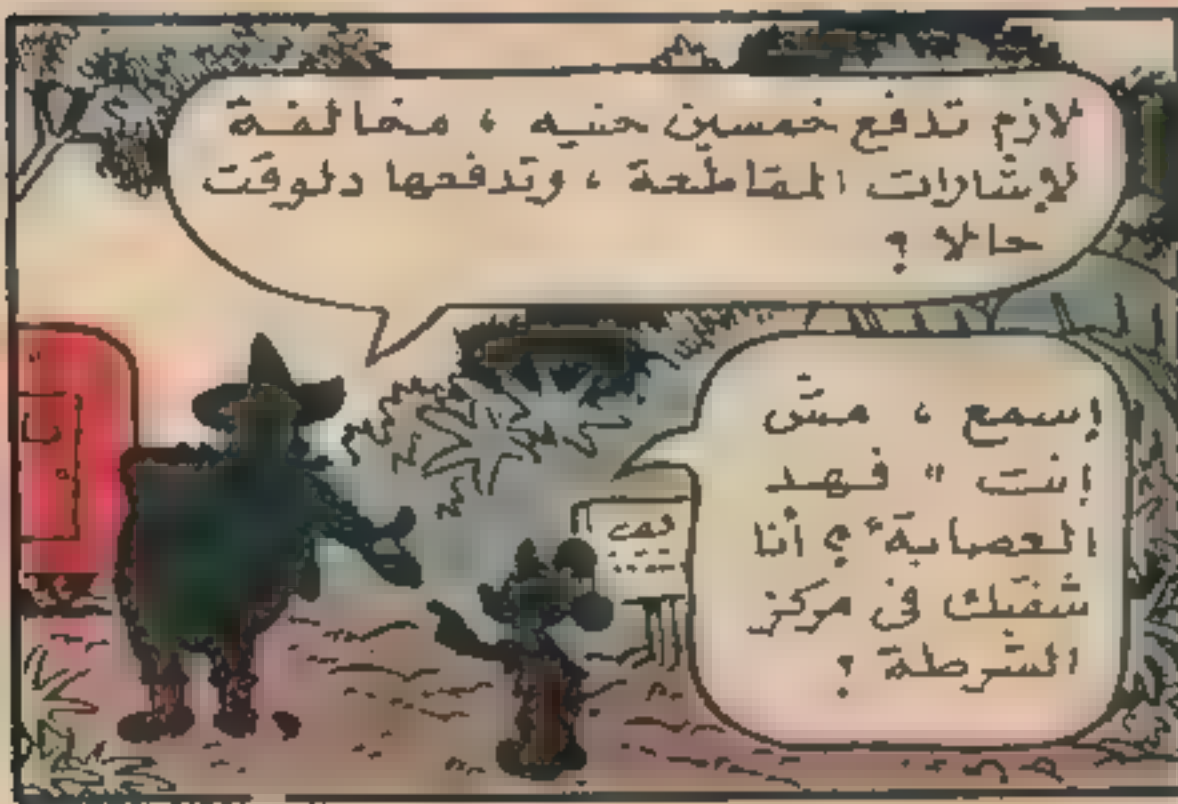 لازم تدفع خمسين جنيه ، مخالفة
لإشارات المقاطعة ، وتدفعها دلوقت
حالا ؟
إسمع ، مش
إنت " فهد
العصابة " ؟ أنا
شفتك في مركز
الشرطة ؟
قف